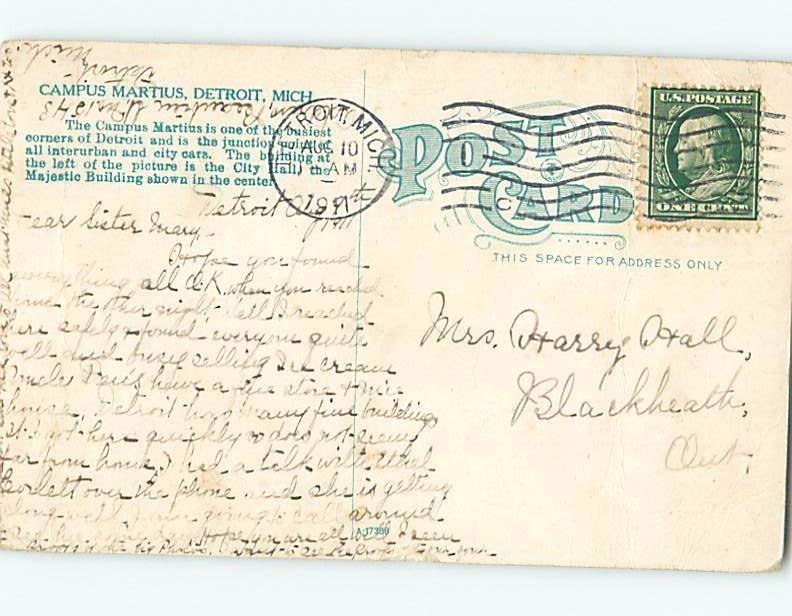 CAMPUS MARTIUS, DETROIT, MICH.
The Campus Martius is one of the busiest
corners of Detroit and is the junction
all interurban and city cars. The building at
the left of the picture is the City Hall, the
Majestic Building shown in the center.
DETROIT, MICH.
AUG 10
AM
1911
POST
CARD
U.S. POSTAGE
ONE CENT
THIS SPACE FOR ADDRESS ONLY
Detroit
1911
ear Sister Mary.
Hope you found
everything all O.K. when you reached
home the other night. Well I reached
here safely & found everyone quite
well and busy selling Ice cream
Uncle have a fine store & nice
house, Detroit has many fine buildings
I got here quickly so does not seem
far from home, I had a talk with Ethel
Corlett over the phone and she is getting
along well I am going to call around
Hope you are all well
Mrs. Harry Hall,
Blackheath,
Ont.
A-17380